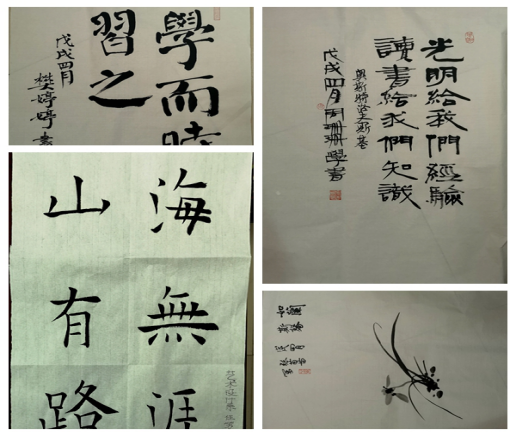 學而時
習之
戊戌四月
樊婷婷書
光明給我們經驗
讀書給我們知識
奧斯特洛夫斯基
戊戌四月周珊珊學書
海無涯
山有路